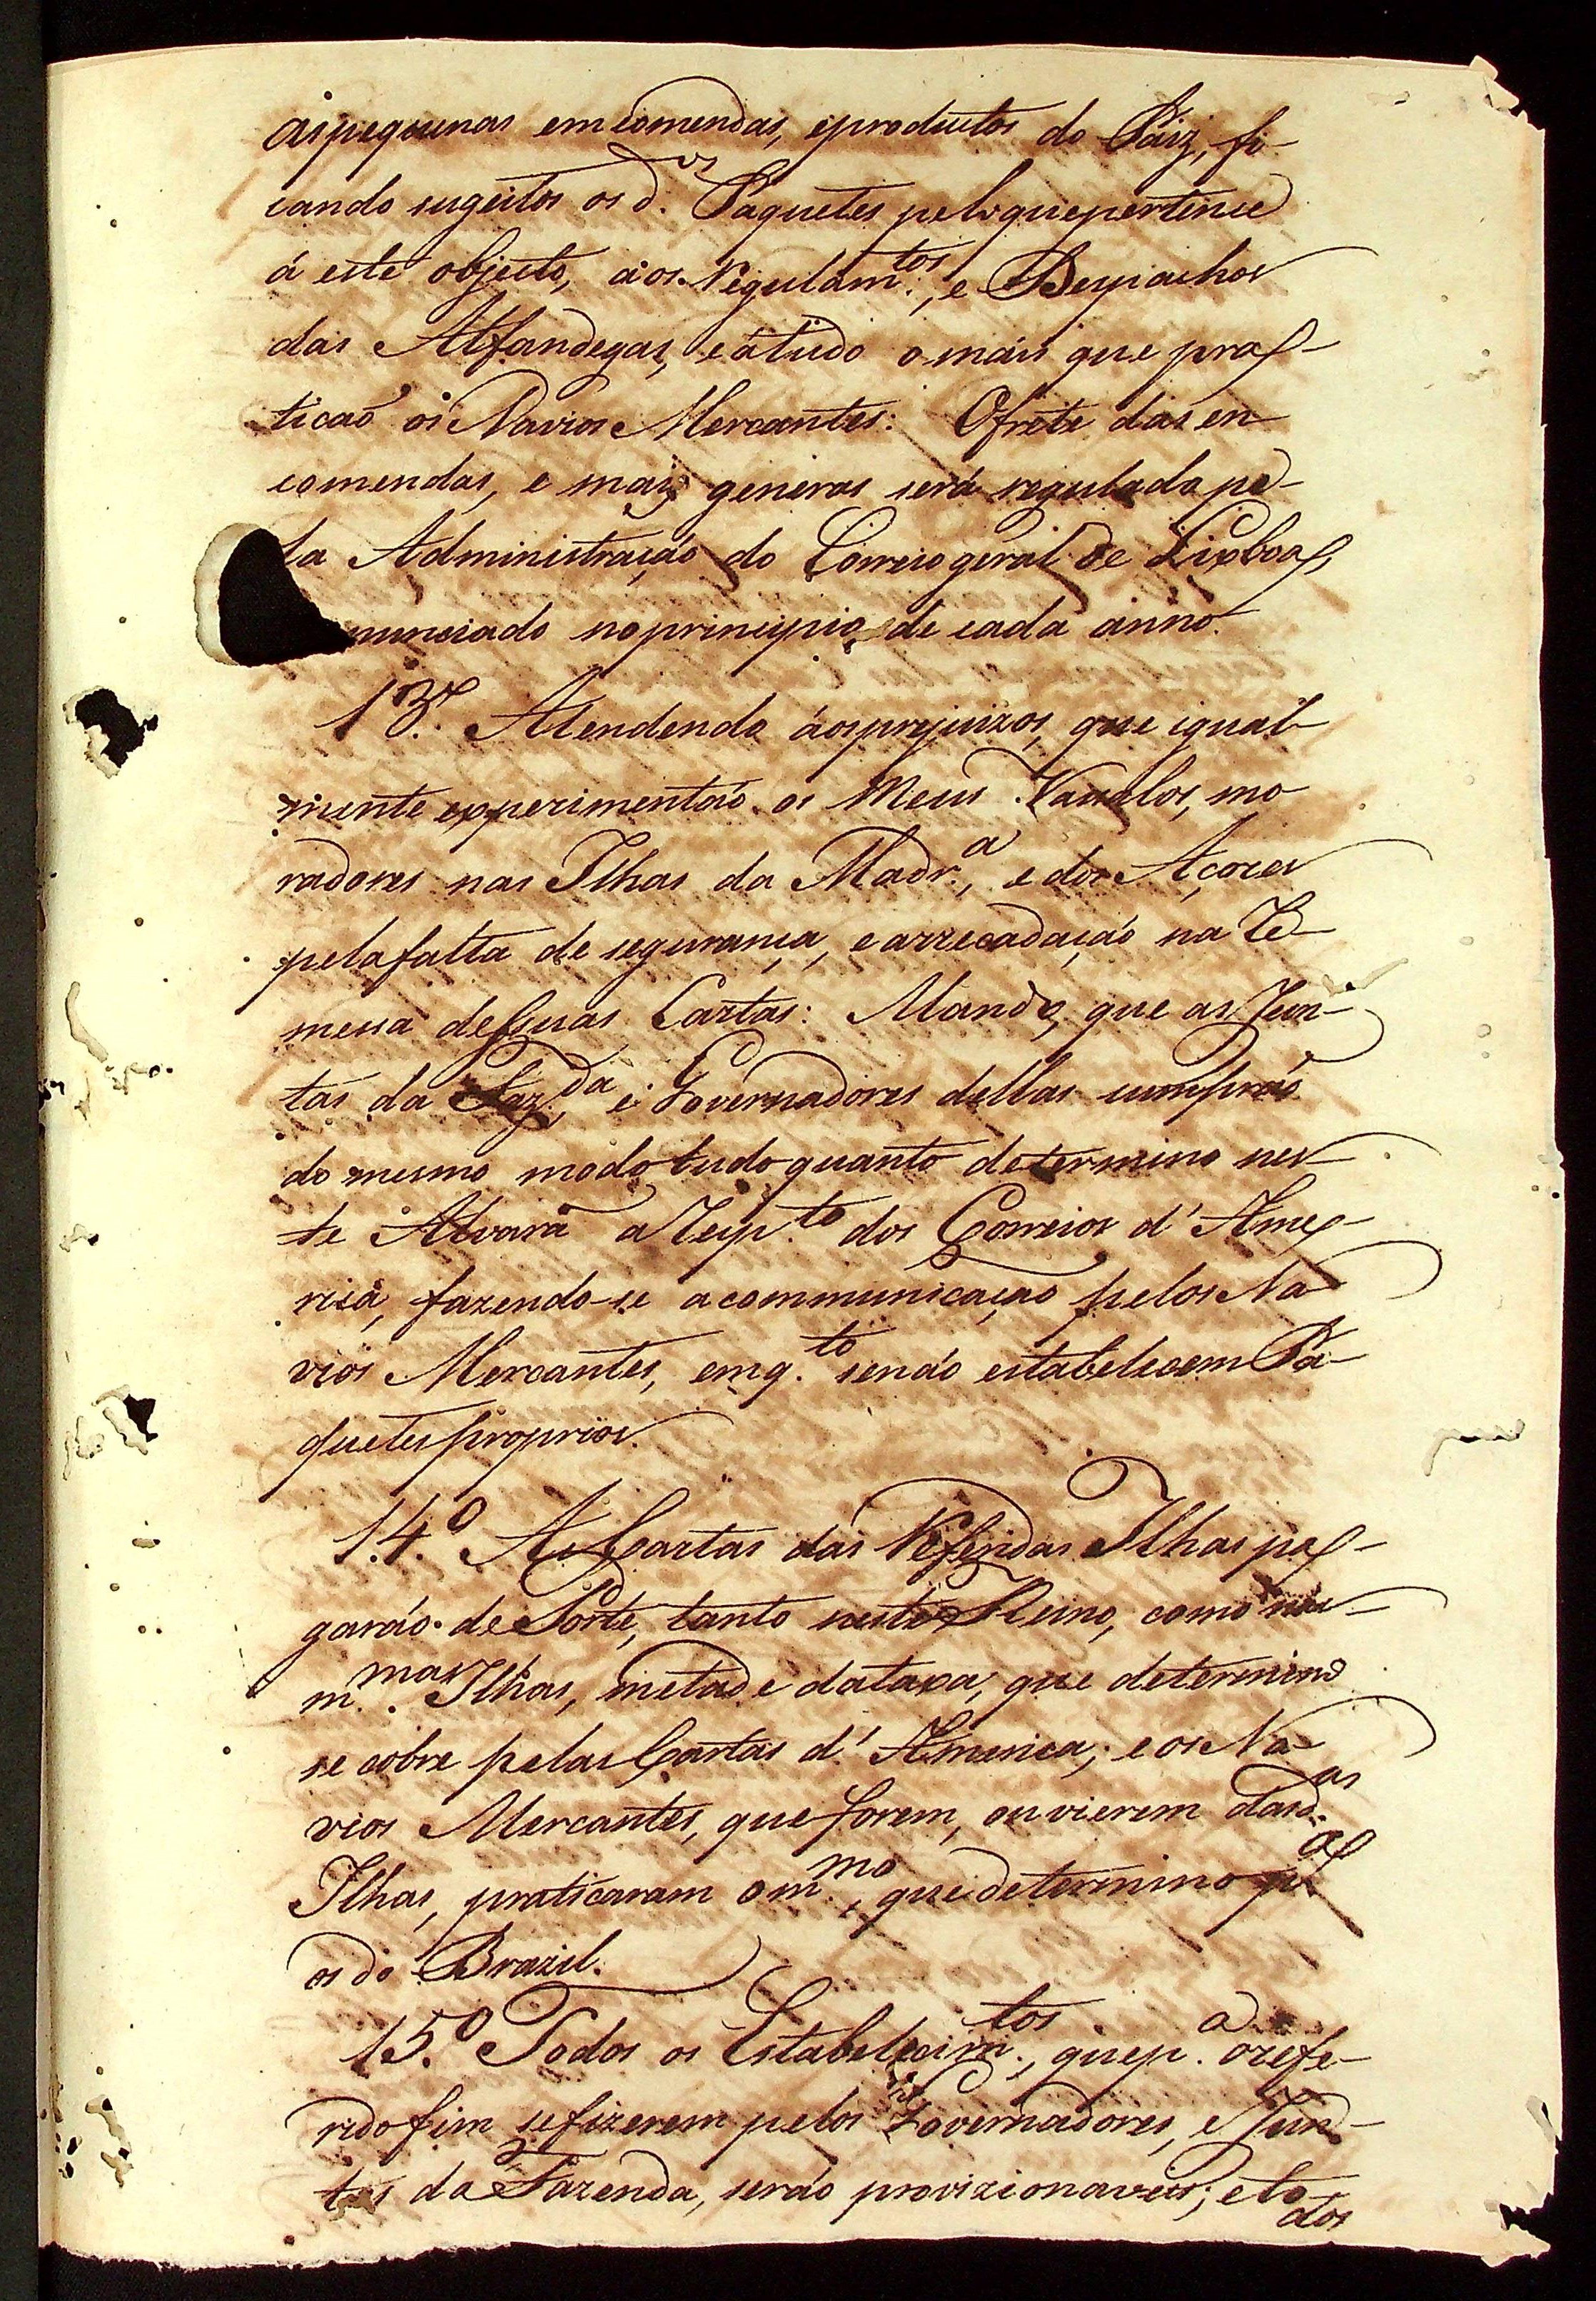 as pequenas emcomendas, e productos do Paiz, fi-
cando sugeitos os d.os Paquetes pelo que pertence
á este objecto, aos Regulam.tos, e Despachos
das Alfandegas, e á tudo o mais que pra-
ticaõ os Navios Mercantes: O frete das en-
comendas, e mais generos será regulado pe-
la Administração do Correio geral de Lixboa,
nunciado no principio de cada anno.
13.º Atendendo aos prejuizos, que igual-
mente experimentaõ os Meus Vassalos, mo-
radores nas Ilhas da Madr.a, e dos Açores
pela falta de segurança, e arrecadação na Re-
messa de suas Cartas: Mando, que as Jun-
tas da Faz.da, e Governadores dellas cumpraõ
do mesmo modo tudo quanto determino nes-
te Alvará a resp.to dos Correios d'Ame-
rica, fazendo-se a communicação pelos Na-
vios Mercantes, emq.to senaõ estabelecem Pa-
quetes proprios.
14.º As Cartas das Referidas Ilhas pa-
garáõ de Porte, tanto neste Reino, como nas
m.mas Ilhas, metade da taxa, que determino
se cobre pelas Cartas d'America; e os Na-
vios Mercantes, que forem, ou vierem das d.as
Ilhas, praticaram o m.mo, que determino p.a
os do Brazil.
15.º Todos os Estabelecim.tos, que p.a o refe-
rido fim se fizerem pelos Governadores, e Jun-
tas da Fazenda, seráõ provizionaveis; e to-
dos